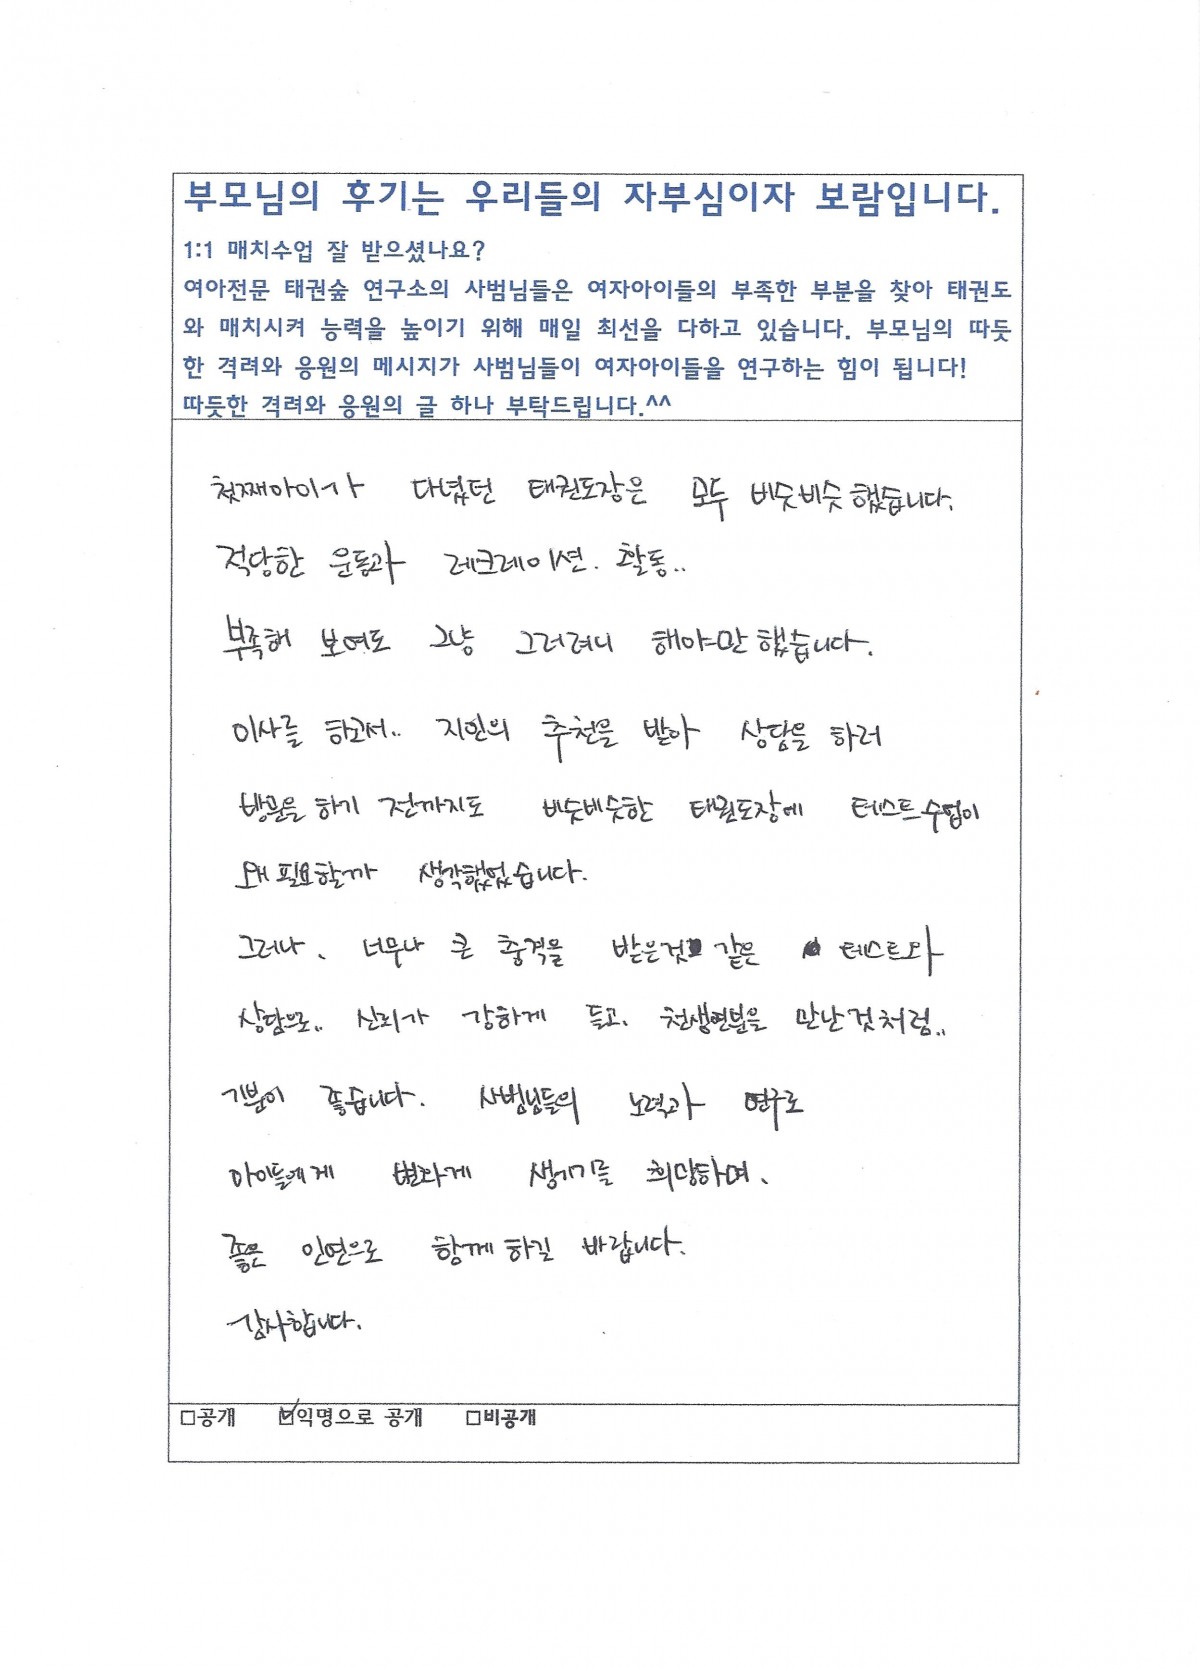 부모님의 후기는 우리들의 자부심이자 보람입니다.
1:1 매치수업 잘 받으셨나요?
여아전문 태권숲 연구소의 사범님들은 여자아이들의 부족한 부분을 찾아 태권도
와 매치시켜 능력을 높이기 위해 매일 최선을 다하고 있습니다. 부모님의 따듯
한 격려와 응원의 메시지가 사범님들이 여자아이들을 연구하는 힘이 됩니다!
따듯한 격려와 응원의 글 하나 부탁드립니다.^^
첫째아이가 다녔던 태권도장은 모두 비슷비슷 했습니다.
적당한 운동과 레크레이션. 활동..
부족해 보여도 그냥 그러려니 해야만 했습니다.
이사를 하고서.. 지인의 추천을 받아 상담을 하러
방문을 하기 전까지도 비슷비슷한 태권도장에 테스트 수업이
왜 필요할까 생각했었습니다.
그러나, 너무나 큰 충격을 받은것 같은 테스트와
상담으로.. 신뢰가 강하게 들고, 천생연분을 만난것처럼..
기분이 좋습니다. 사범님들의 노력과 연구로
아이들에게 변화가 생기기를 희망하며,
좋은 인연으로 함께 하길 바랍니다.
감사합니다.
□공개 ☑익명으로 공개 □비공개